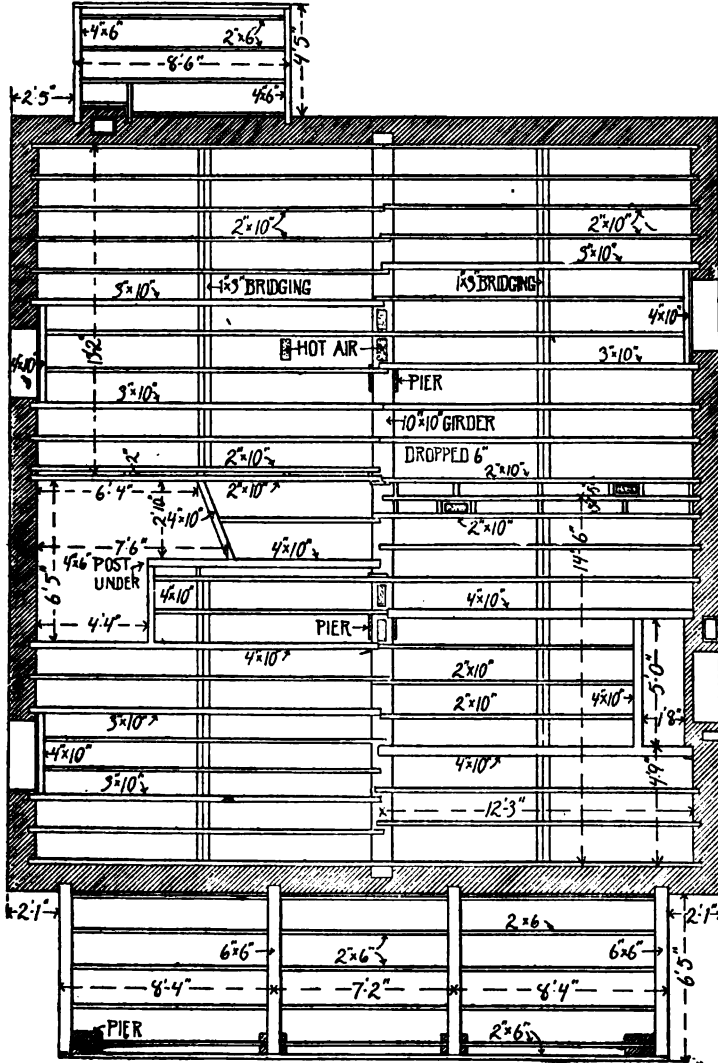 4"x6"
2"x6"
8'-6"
4'5"
4"x6"
2'5"
2"x10"
2"x10"
3"x10"
3"x10"
1"x3" BRIDGING
1"x3" BRIDGING
4"x10"
HOT AIR
4"x10"
3"x10"
PIER
3"x10"
10"x10" GIRDER
DROPPED 6"
2"x10"
2"x10"
6'-4"
2"x10"
2'10"
4"x10"
2"x10"
14'-6"
7'6"
4"x10"
4"x6" POST
UNDER
6'5"
4"x10"
4"x10"
4'4"
PIER
4"x10"
2"x10"
5'0"
2"x10"
4"x10"
1'8"
3"x10"
4"x10"
4"x10"
4'9"
3"x10"
12'-3"
2'1"
2'1"
2x6
6"x6"
2"x6"
6"x6"
6'5"
8'-4"
7'-2"
8'-4"
PIER
2"x6"